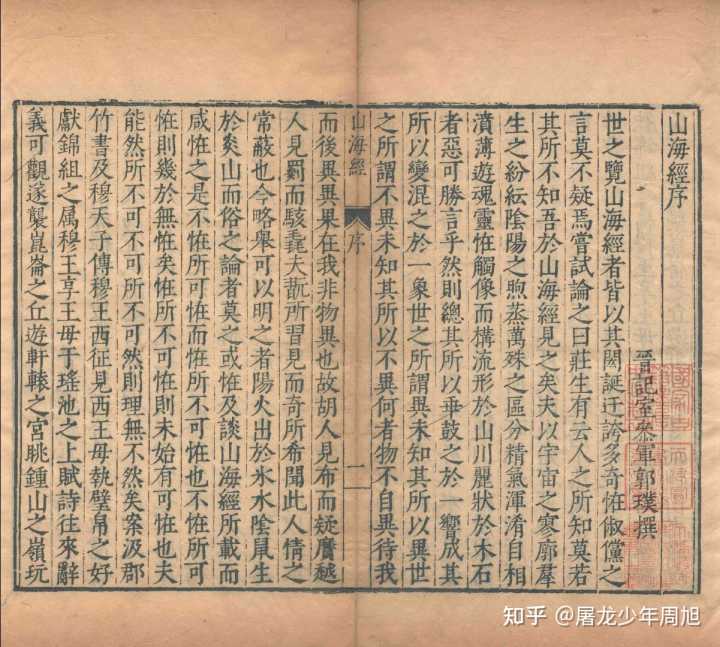 山海經序
晉記室參軍郭璞撰
世之覽山海經者皆以其閎誕迂誇多奇恠俶儻之
言莫不疑焉嘗試論之曰莊生有云人之所知莫若
其所不知吾於山海經見之矣夫以宇宙之寥廓羣
生之紛紜陰陽之煦蒸萬殊之區分精氣渾淆自相
濆薄遊魂靈恠觸像而構流形於山川麗狀於木石
者惡可勝言乎然則總其所以乖鼓之於一響成其
所以變混之於一象世之所謂異未知其所以異世
之所謂不異未知其所以不異何者物不自異待我
山海經
序
一
而後異異果在我非物異也故胡人見布而疑黂越
人見罽而駭毳夫翫所習見而奇所希聞此人情之
常蔽也今略舉可以明之者陽火出於氷水陰鼠生
於炎山而俗之論者莫之或恠及談山海經所載而
咸恠之是不恠所可恠而恠所不可恠也不恠所可
恠則幾於無恠矣恠所不可恠則未始有可恠也夫
能然所不可不可所不可然則理無不然矣案汲郡
竹書及穆天子傳穆王西征見西王母執璧帛之好
獻錦組之属穆王享王母于瑤池之上賦詩往來辭
義可觀遂襲崑崙之丘遊軒轅之宮眺鍾山之嶺玩
知乎 @屠龙少年周旭